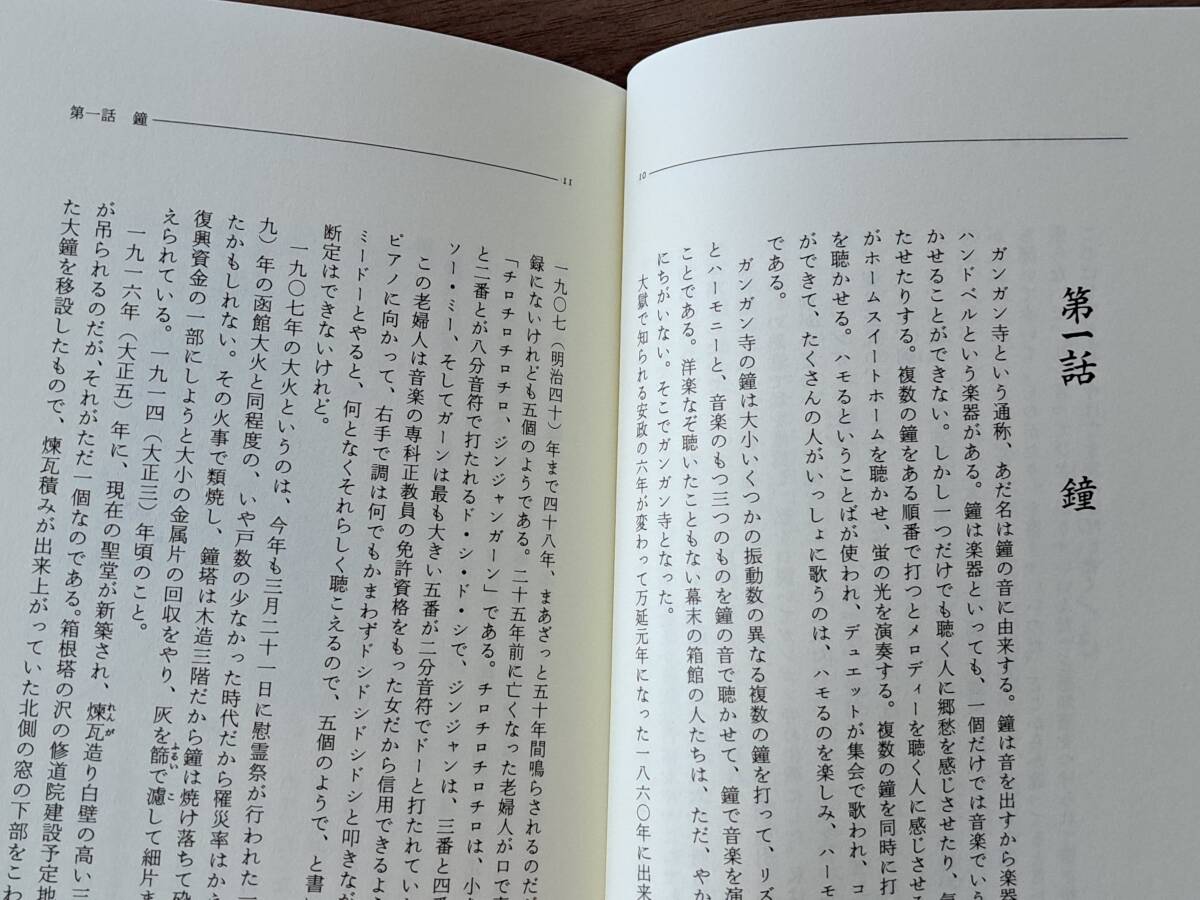 10
第一話　鐘
ガンガン寺という通称、あだ名は鐘の音に由来する。鐘は音を出すから楽器
ハンドベルという楽器がある。鐘は楽器といっても、一個だけでは音楽でいう
かせることができない。しかし一つだけでも聴く人に郷愁を感じさせたり、気
たせたりする。複数の鐘をある順番で打つとメロディーを聴く人に感じさせる
がホームスイートホームを聴かせ、蛍の光を演奏する。複数の鐘を同時に打
を聴かせる。ハモるということばが使われ、デュエットが集会で歌われ、コ
ができて、たくさんの人がいっしょに歌うのは、ハモるのを楽しみ、ハーモ
である。
ガンガン寺の鐘は大小いくつかの振動数の異なる複数の鐘を打って、リズ
とハーモニーと、音楽のもつ三つのものを鐘の音で聴かせて、鐘で音楽を演
ことである。洋楽なぞ聴いたこともない幕末の箱館の人たちは、ただ、やか
にちがいない。そこでガンガン寺となった。
大獄で知られる安政の六年が変わって万延元年になった一八六〇年に出来
第一話　鐘
11
一九〇七（明治四十）年まで四十八年、まあざっと五十年間鳴らされるのだが
録にないけれども五個のようである。二十五年前に亡くなった老婦人が口で
「チロチロチロチロ、ジンジャンガーン」である。チロチロチロチロは、小
と二番とが八分音符で打たれるド・シ・ド・シで、ジンジャンは、三番と四
ソー・ミー、そしてガーンは最も大きい五番が二分音符でドーと打たれてい
この老婦人は音楽の専科正教員の免許資格をもった女だから信用できるよう
ピアノに向かって、右手で調は何でもかまわずドシドシドシドシと叩きなが
ミードーとやると、何となくそれらしく聴こえるので、五個のようで、と書
断定はできないけれど。
一九〇七年の大火というのは、今年も三月二十一日に慰霊祭が行われた一
九）年の函館大火と同程度の、いや戸数の少なかった時代だから罹災率はかえ
たかもしれない。その火事で類焼し、鐘塔は木造三階だから鐘は焼け落ちて砕
復興資金の一部にしようと大小の金属片の回収をやり、灰を篩で濾して細片ま
えられている。一九一四（大正三）年頃のこと。
一九一六年（大正五）年に、現在の聖堂が新築され、煉瓦造り白壁の高い三
が吊られるのだが、それがただ一個なのである。箱根塔の沢の修道院建設予定地
た大鐘を移設したもので、煉瓦積みが出来上がっていた北側の窓の下部をこわ